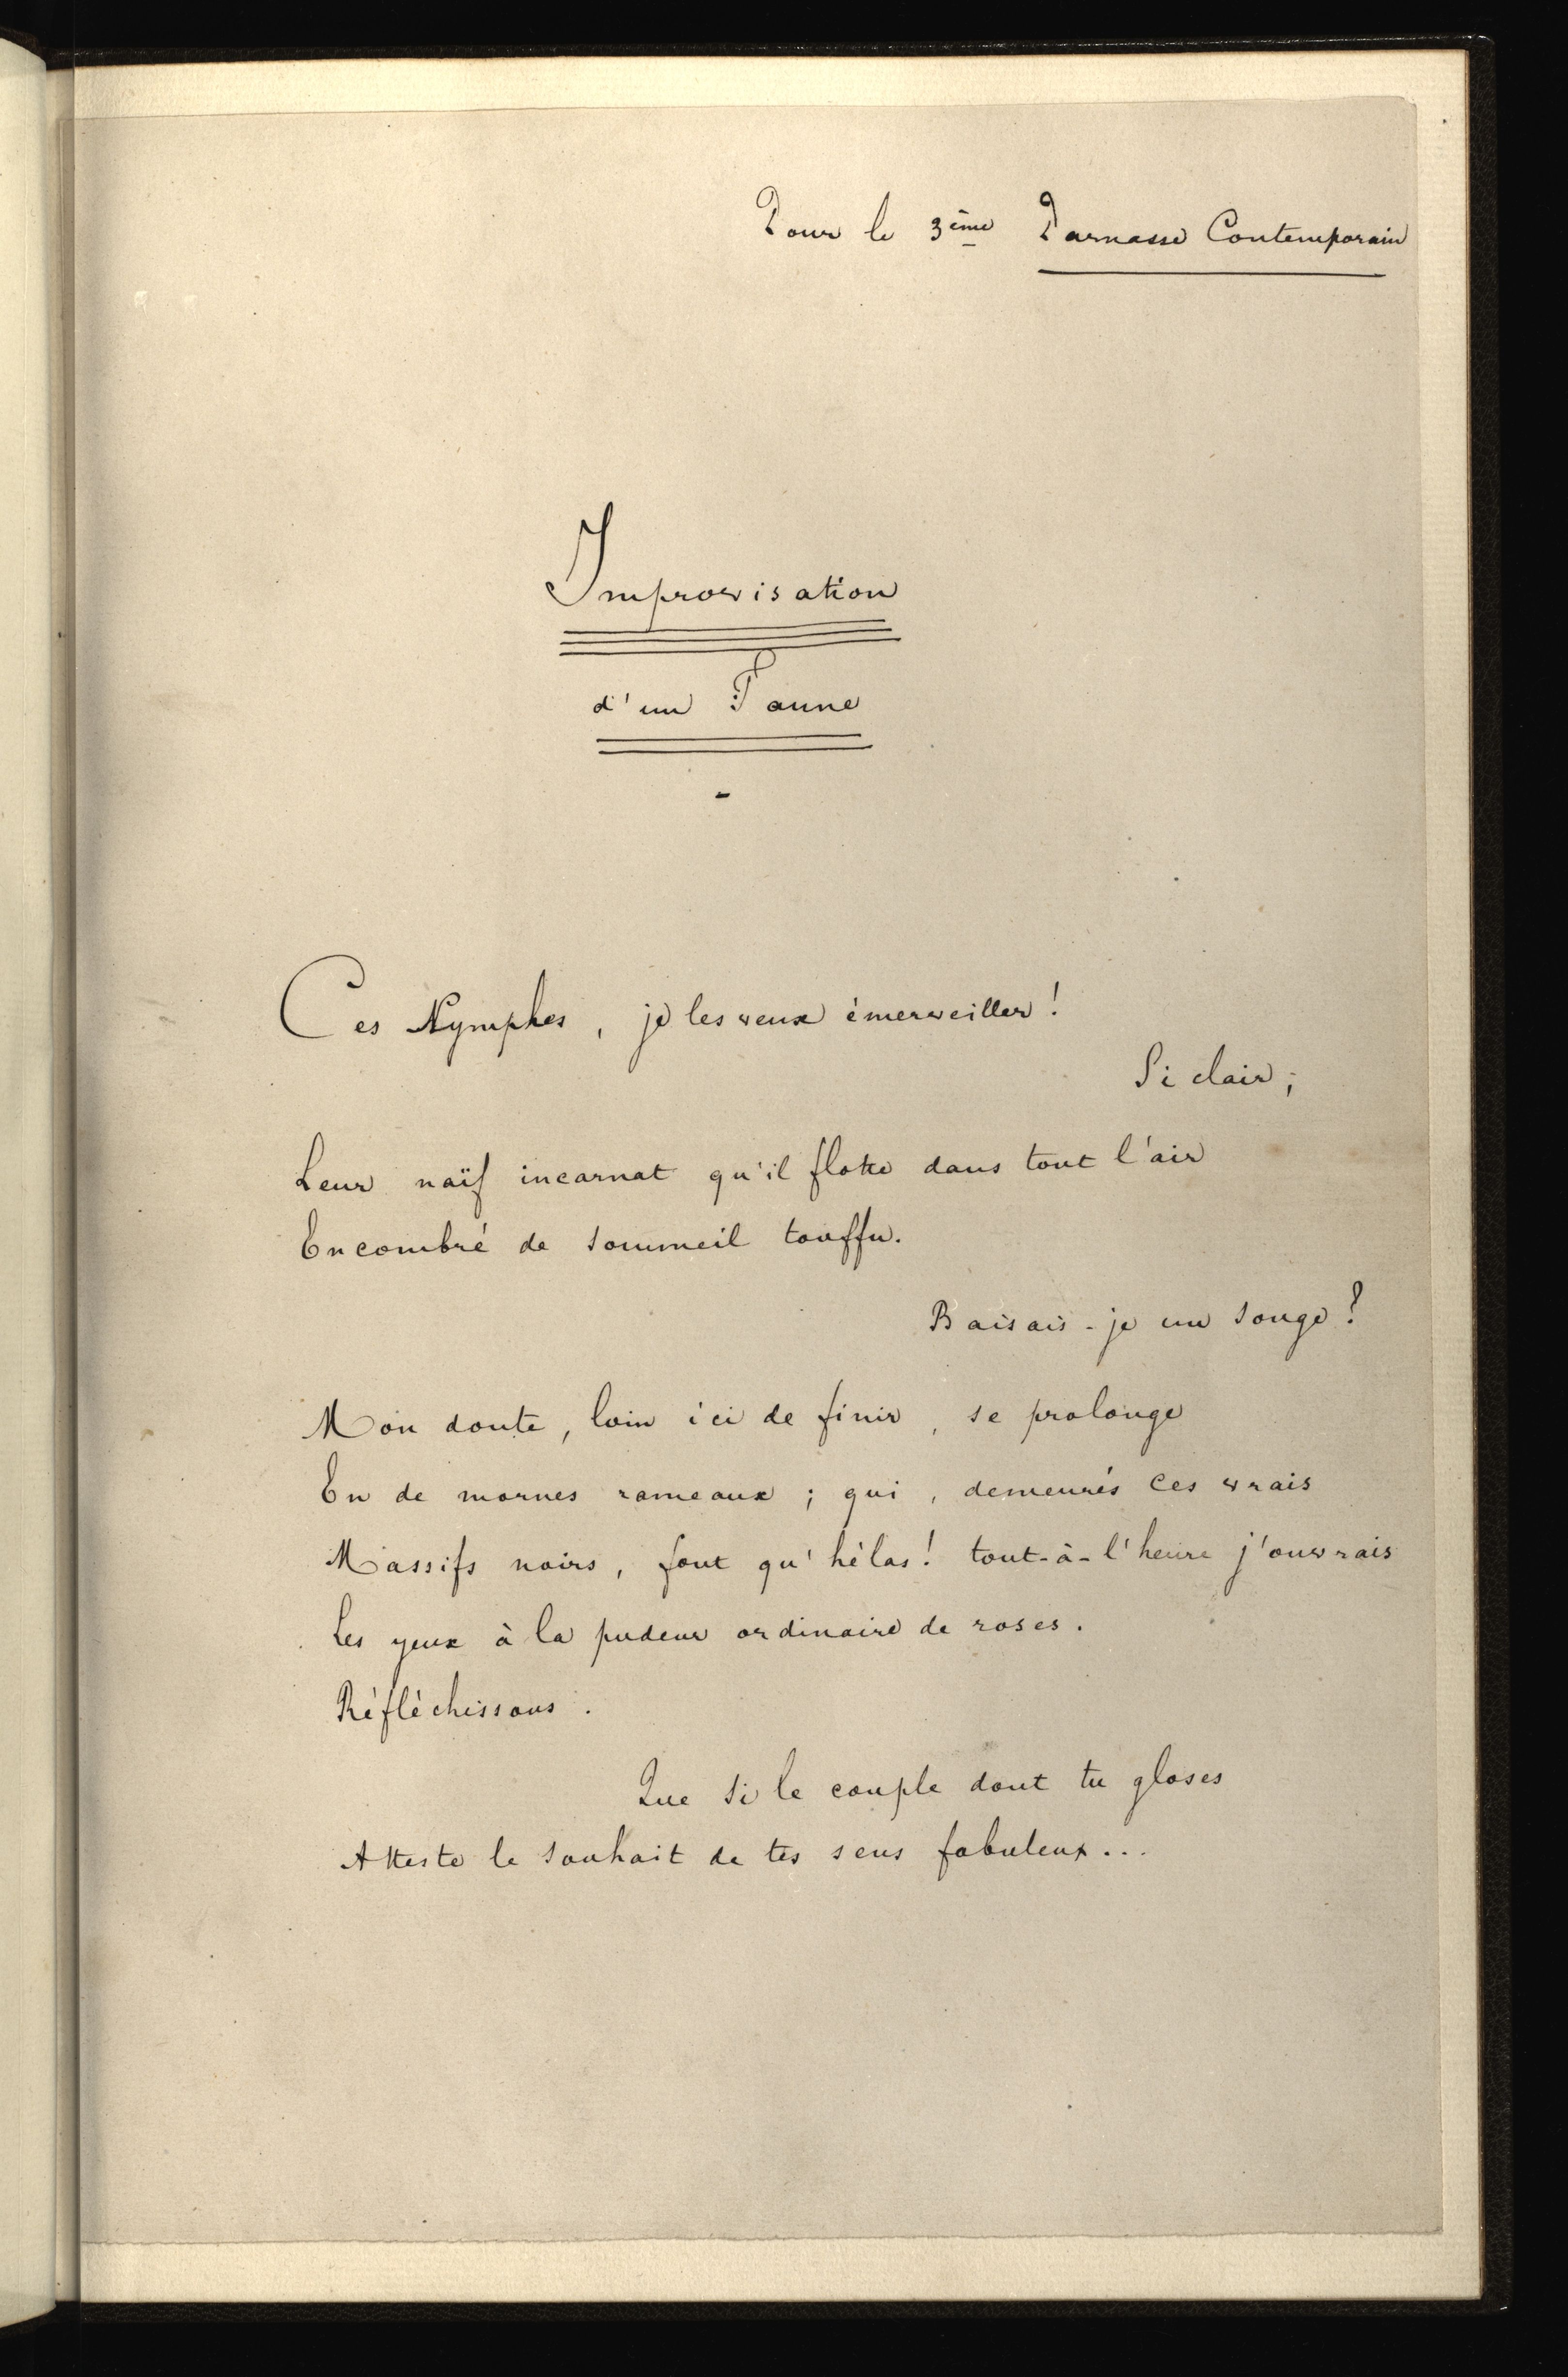 Pour le 3ème Parnasse Contemporain
Improvisation
d'un Faune
-
Ces Nymphes, je les veux émerveiller!
Si clair,
Leur naïf incarnat qu'il flotte dans tout l'air
Encombré de sommeil touffu.
Baisais-je un songe?
Mon doute, loin ici de finir, se prolonge
En de mornes rameaux; qui, demeurés ces vrais
Massifs noirs, font qu'hélas! tout-à-l'heure j'ouvrais
Les yeux à la pudeur ordinaire de roses.
Réfléchissons.
Que si le couple dont tu gloses
Atteste le souhait de tes sens fabuleux...